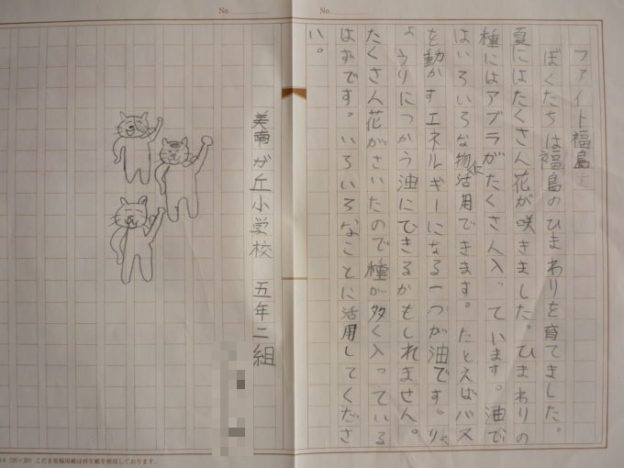 ファイト福島
ぼくたちは福島のひまわりを育てました。
夏にはたくさん花が咲きました。ひまわりの
種にはアブラがたくさん入っています。油で
はいろいろな物に活用できます。たとえばバス
を動かすエネルギーになる一つが油です。り
ょうりにつかう油にできるかもしれません。
たくさん花がさいたので種が多く入っている
はずです。いろいろなことに活用してくださ
い。
美南が丘小学校 五年二組
No.
No.